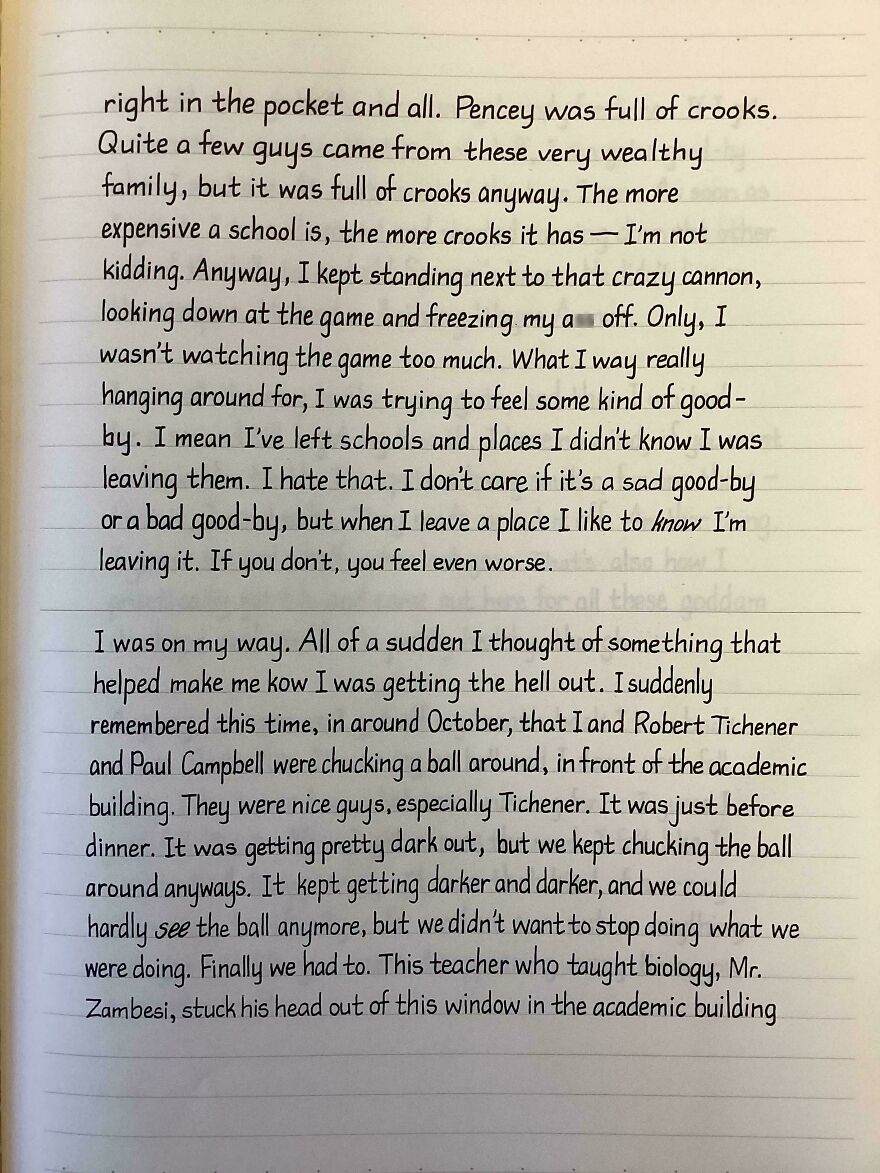 right in the pocket and all. Pencey was full of crooks.
Quite a few guys came from these very wealthy
family, but it was full of crooks anyway. The more
expensive a school is, the more crooks it has — I'm not
kidding. Anyway, I kept standing next to that crazy cannon,
looking down at the game and freezing my a off. Only, I
wasn't watching the game too much. What I way really
hanging around for, I was trying to feel some kind of good-
by. I mean I've left schools and places I didn't know I was
leaving them. I hate that. I don't care if it's a sad good-by
or a bad good-by, but when I leave a place I like to know I'm
leaving it. If you don't, you feel even worse.
I was on my way. All of a sudden I thought of something that
helped make me kow I was getting the hell out. I suddenly
remembered this time, in around October, that I and Robert Tichener
and Paul Campbell were chucking a ball around, in front of the academic
building. They were nice guys, especially Tichener. It was just before
dinner. It was getting pretty dark out, but we kept chucking the ball
around anyways. It kept getting darker and darker, and we could
hardly see the ball anymore, but we didn't want to stop doing what we
were doing. Finally we had to. This teacher who taught biology, Mr.
Zambesi, stuck his head out of this window in the academic building